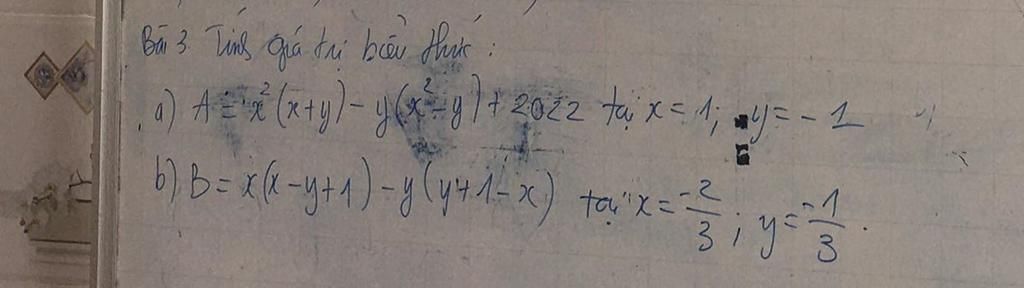 Bài 3. Tính giá trị biểu thức :
a) A = x²(x+y) - y(x²-y) + 2022 tại x = 1; y = - 1
b) B = x(x-y+1) - y(y+1-x) tại x = -2/3 ; y = -1/3.